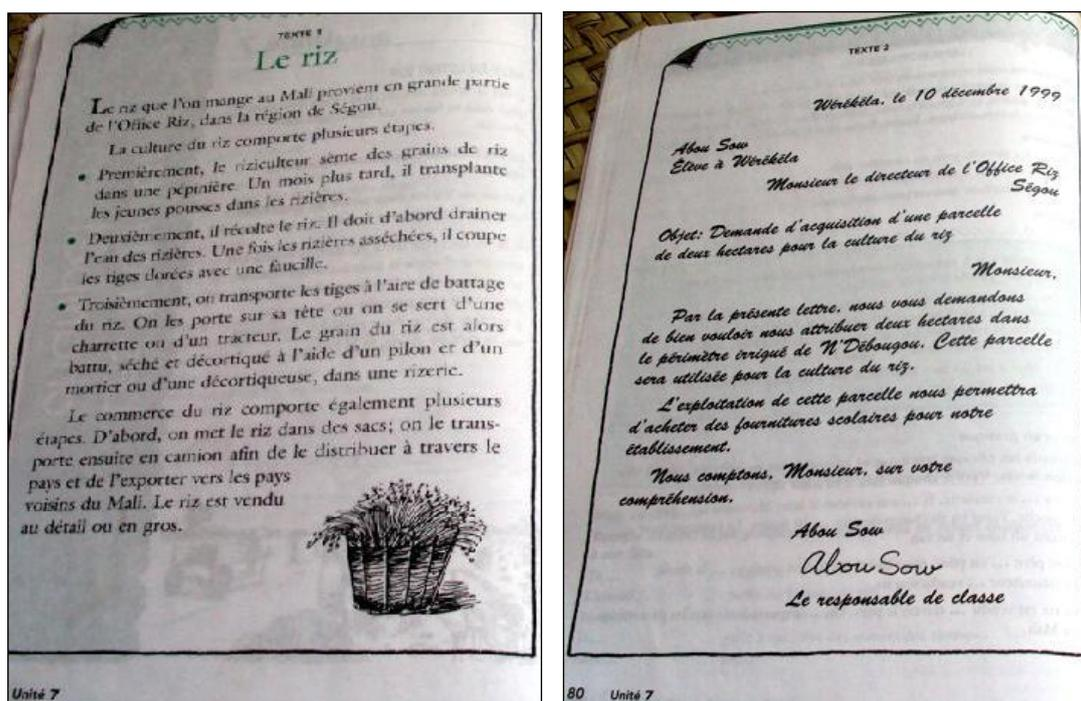 TEXTE 1
Le riz
Le riz que l'on mange au Mali provient en grande partie
de l'Office Riz, dans la région de Ségou.
La culture du riz comporte plusieurs étapes.
• Premièrement, le riziculteur sème des grains de riz
dans une pépinière. Un mois plus tard, il transplante
les jeunes pousses dans les rizières.
• Deuxièmement, il récolte le riz. Il doit d'abord drainer
l'eau des rizières. Une fois les rizières asséchées, il coupe
les tiges dorées avec une faucille.
• Troisièmement, on transporte les tiges à l'aire de battage
du riz. On les porte sur sa tête ou on se sert d'une
charrette ou d'un tracteur. Le grain du riz est alors
battu, séché et décortiqué à l'aide d'un pilon et d'un
mortier ou d'une décortiqueuse, dans une rizerie.
Le commerce du riz comporte également plusieurs
étapes. D'abord, on met le riz dans des sacs; on le trans-
porte ensuite en camion afin de le distribuer à travers le
pays et de l'exporter vers les pays
voisins du Mali. Le riz est vendu
au détail ou en gros.
Unité 7
TEXTE 2
Wérékéla, le 10 décembre 1999
Abou Sow
Élève à Wérékéla
Monsieur le directeur de l'Office Riz
Ségou
Objet: Demande d'acquisition d'une parcelle
de deux hectares pour la culture du riz
Monsieur,
Par la présente lettre, nous vous demandons
de bien vouloir nous attribuer deux hectares dans
le périmètre irrigué de N'Débougou. Cette parcelle
sera utilisée pour la culture du riz.
L'exploitation de cette parcelle nous permettra
d'acheter des fournitures scolaires pour notre
établissement.
Nous comptons, Monsieur, sur votre
compréhension.
Abou Sow
Abou Sow
Le responsable de classe
80 Unité 7